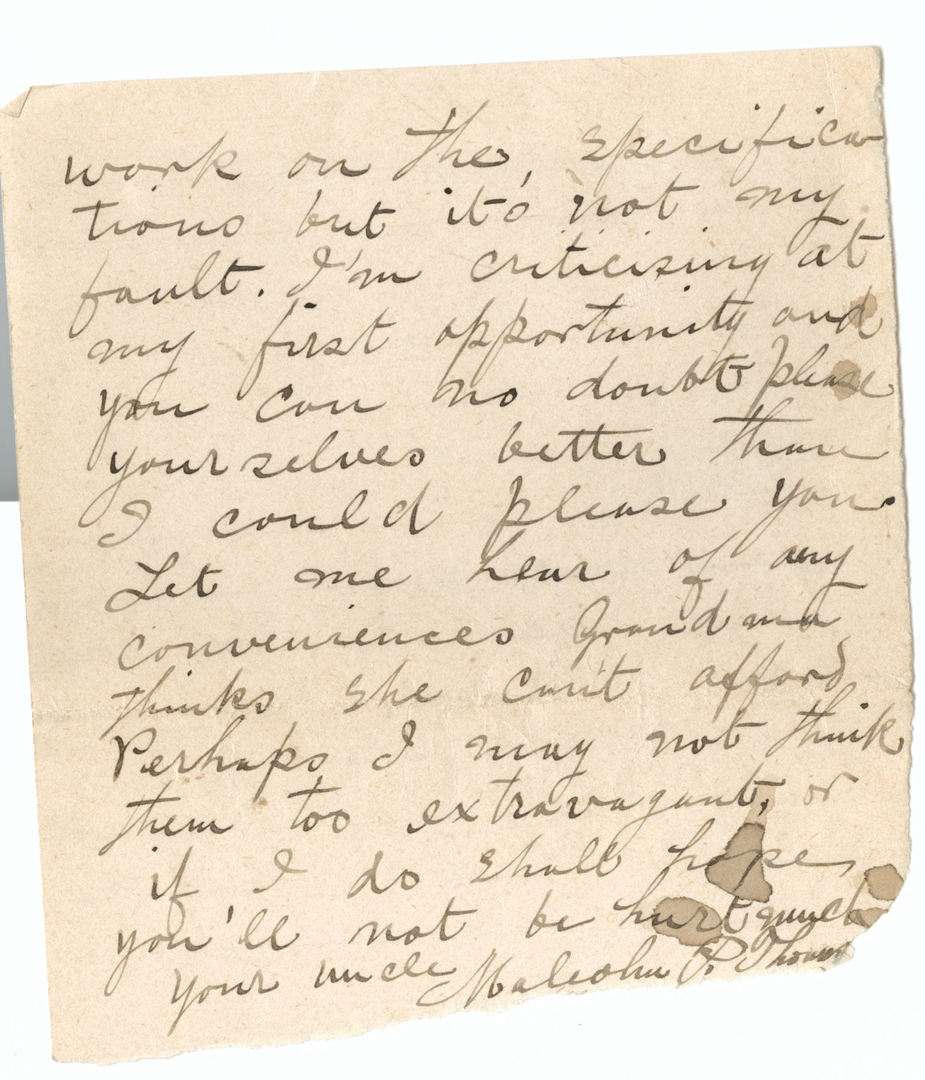 work on the specifica
tions but it's not my
fault. I'm criticising at
my first opportunity and
you can no doubt please
yourselves better than
I could please you.
Let me hear of any
conveniences Grandma
thinks she can't afford
Perhaps I may not think
them too extravagant, or
if I do shall hope
you'll not be hurt much
Your uncle Malcolm P. Thomas